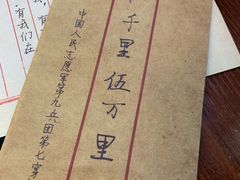 千里伍万里
中国人民志愿军第九兵团第七穿
有我们在